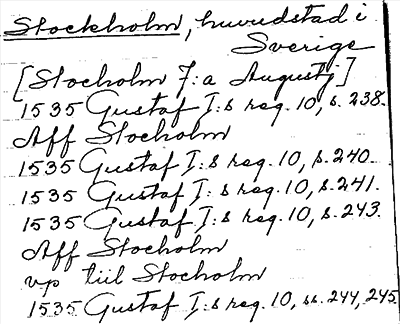 Stockholm, huvudstad i
Sverige
[Stocholm 7:a Augustj]
1535 Gustaf I:s reg. 10, s. 238.
Aff Stocholm
1535 Gustaf I:s reg. 10, s. 240.
1535 Gustaf I:s reg. 10, s. 241.
1535 Gustaf I:s reg. 10, s. 243.
Aff Stocholm
vp tiil Stocholm
1535 Gustaf I:s reg. 10, ss. 244, 245